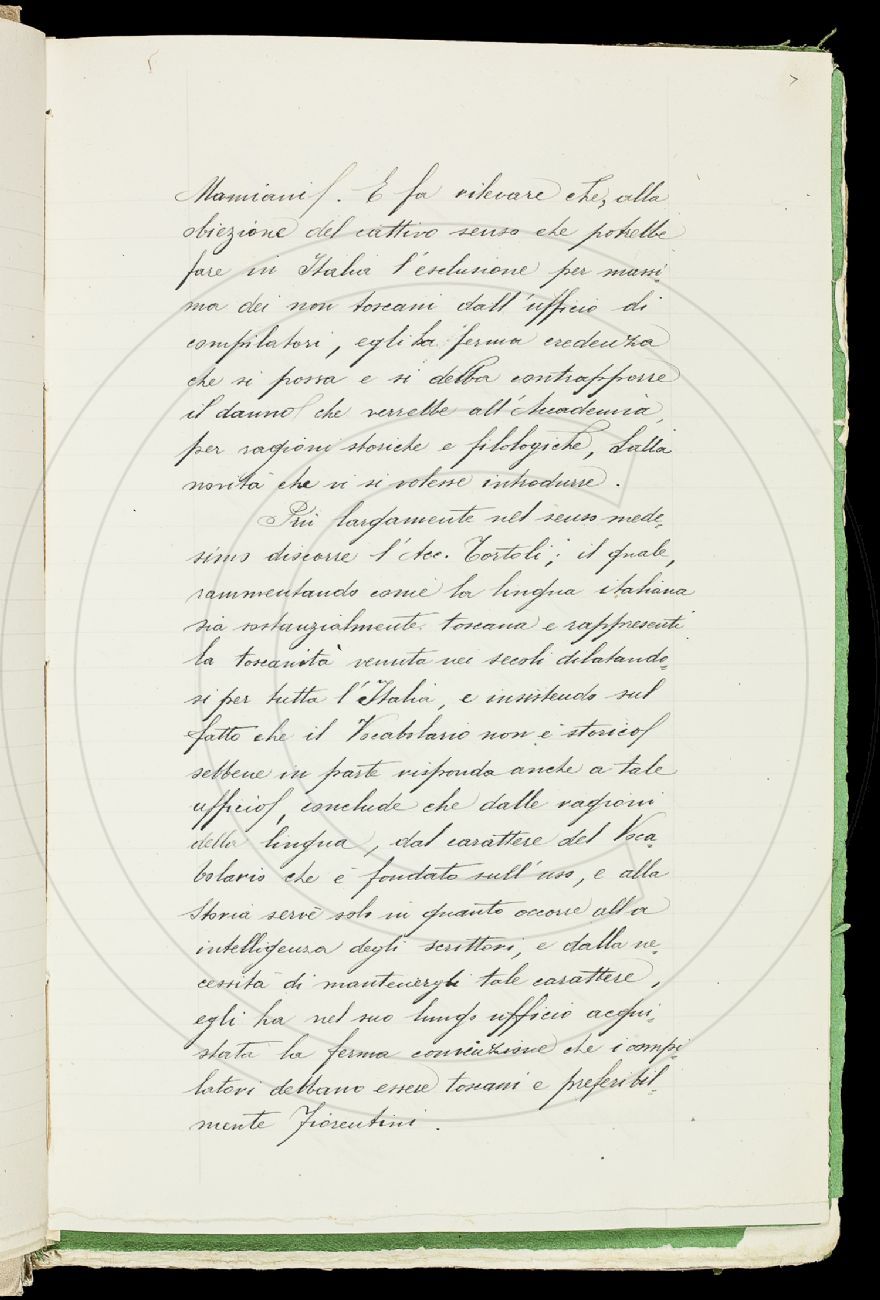 Mamiani. E fa rilevare che, alla
obiezione del cattivo senso che potrebbe
fare in Italia l'esclusione per massi-
ma dei non toscani dall'ufficio di
compilatori, egli ha ferma credenza
che si possa e si debba contrapporre
il danno che verrebbe all'Accademia,
per ragioni storiche e filologiche, dalla
novità che vi si volesse introdurre.
Più largamente nel senso mede-
simo discorre l'Acc. Tortoli; il quale,
rammentando come la lingua italiana
sia sostanzialmente toscana e rappresenti
la toscanità venuta nei secoli dilatando-
si per tutta l'Italia, e insistendo sul
fatto che il Vocabolario non è storico
sebbene in parte risponda anche a tale
ufficio, conclude che dalle ragioni
della lingua, dal carattere del Voca-
bolario che è fondato sull'uso, e alla
storia serve solo in quanto occorre alla
intelligenza degli scrittori, e dalla ne-
cessità di mantenergli tale carattere,
egli ha nel suo lungo ufficio acqui-
stata la ferma convinzione che i compi-
latori debbano essere toscani e preferibil-
mente Fiorentini.